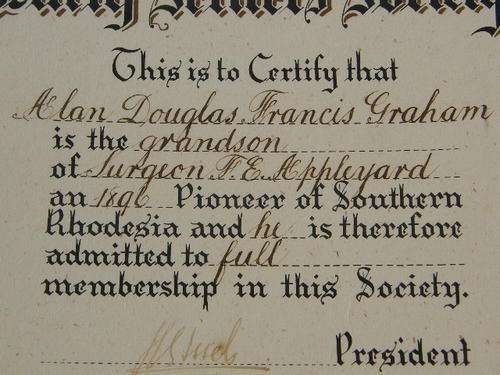 Early Settlers Society
This is to Certify that
Alan Douglas Francis Graham
is the grandson
of Surgeon F. E. Appleyard
an 1896 Pioneer of Southern
Rhodesia and he is therefore
admitted to full
membership in this Society.
President